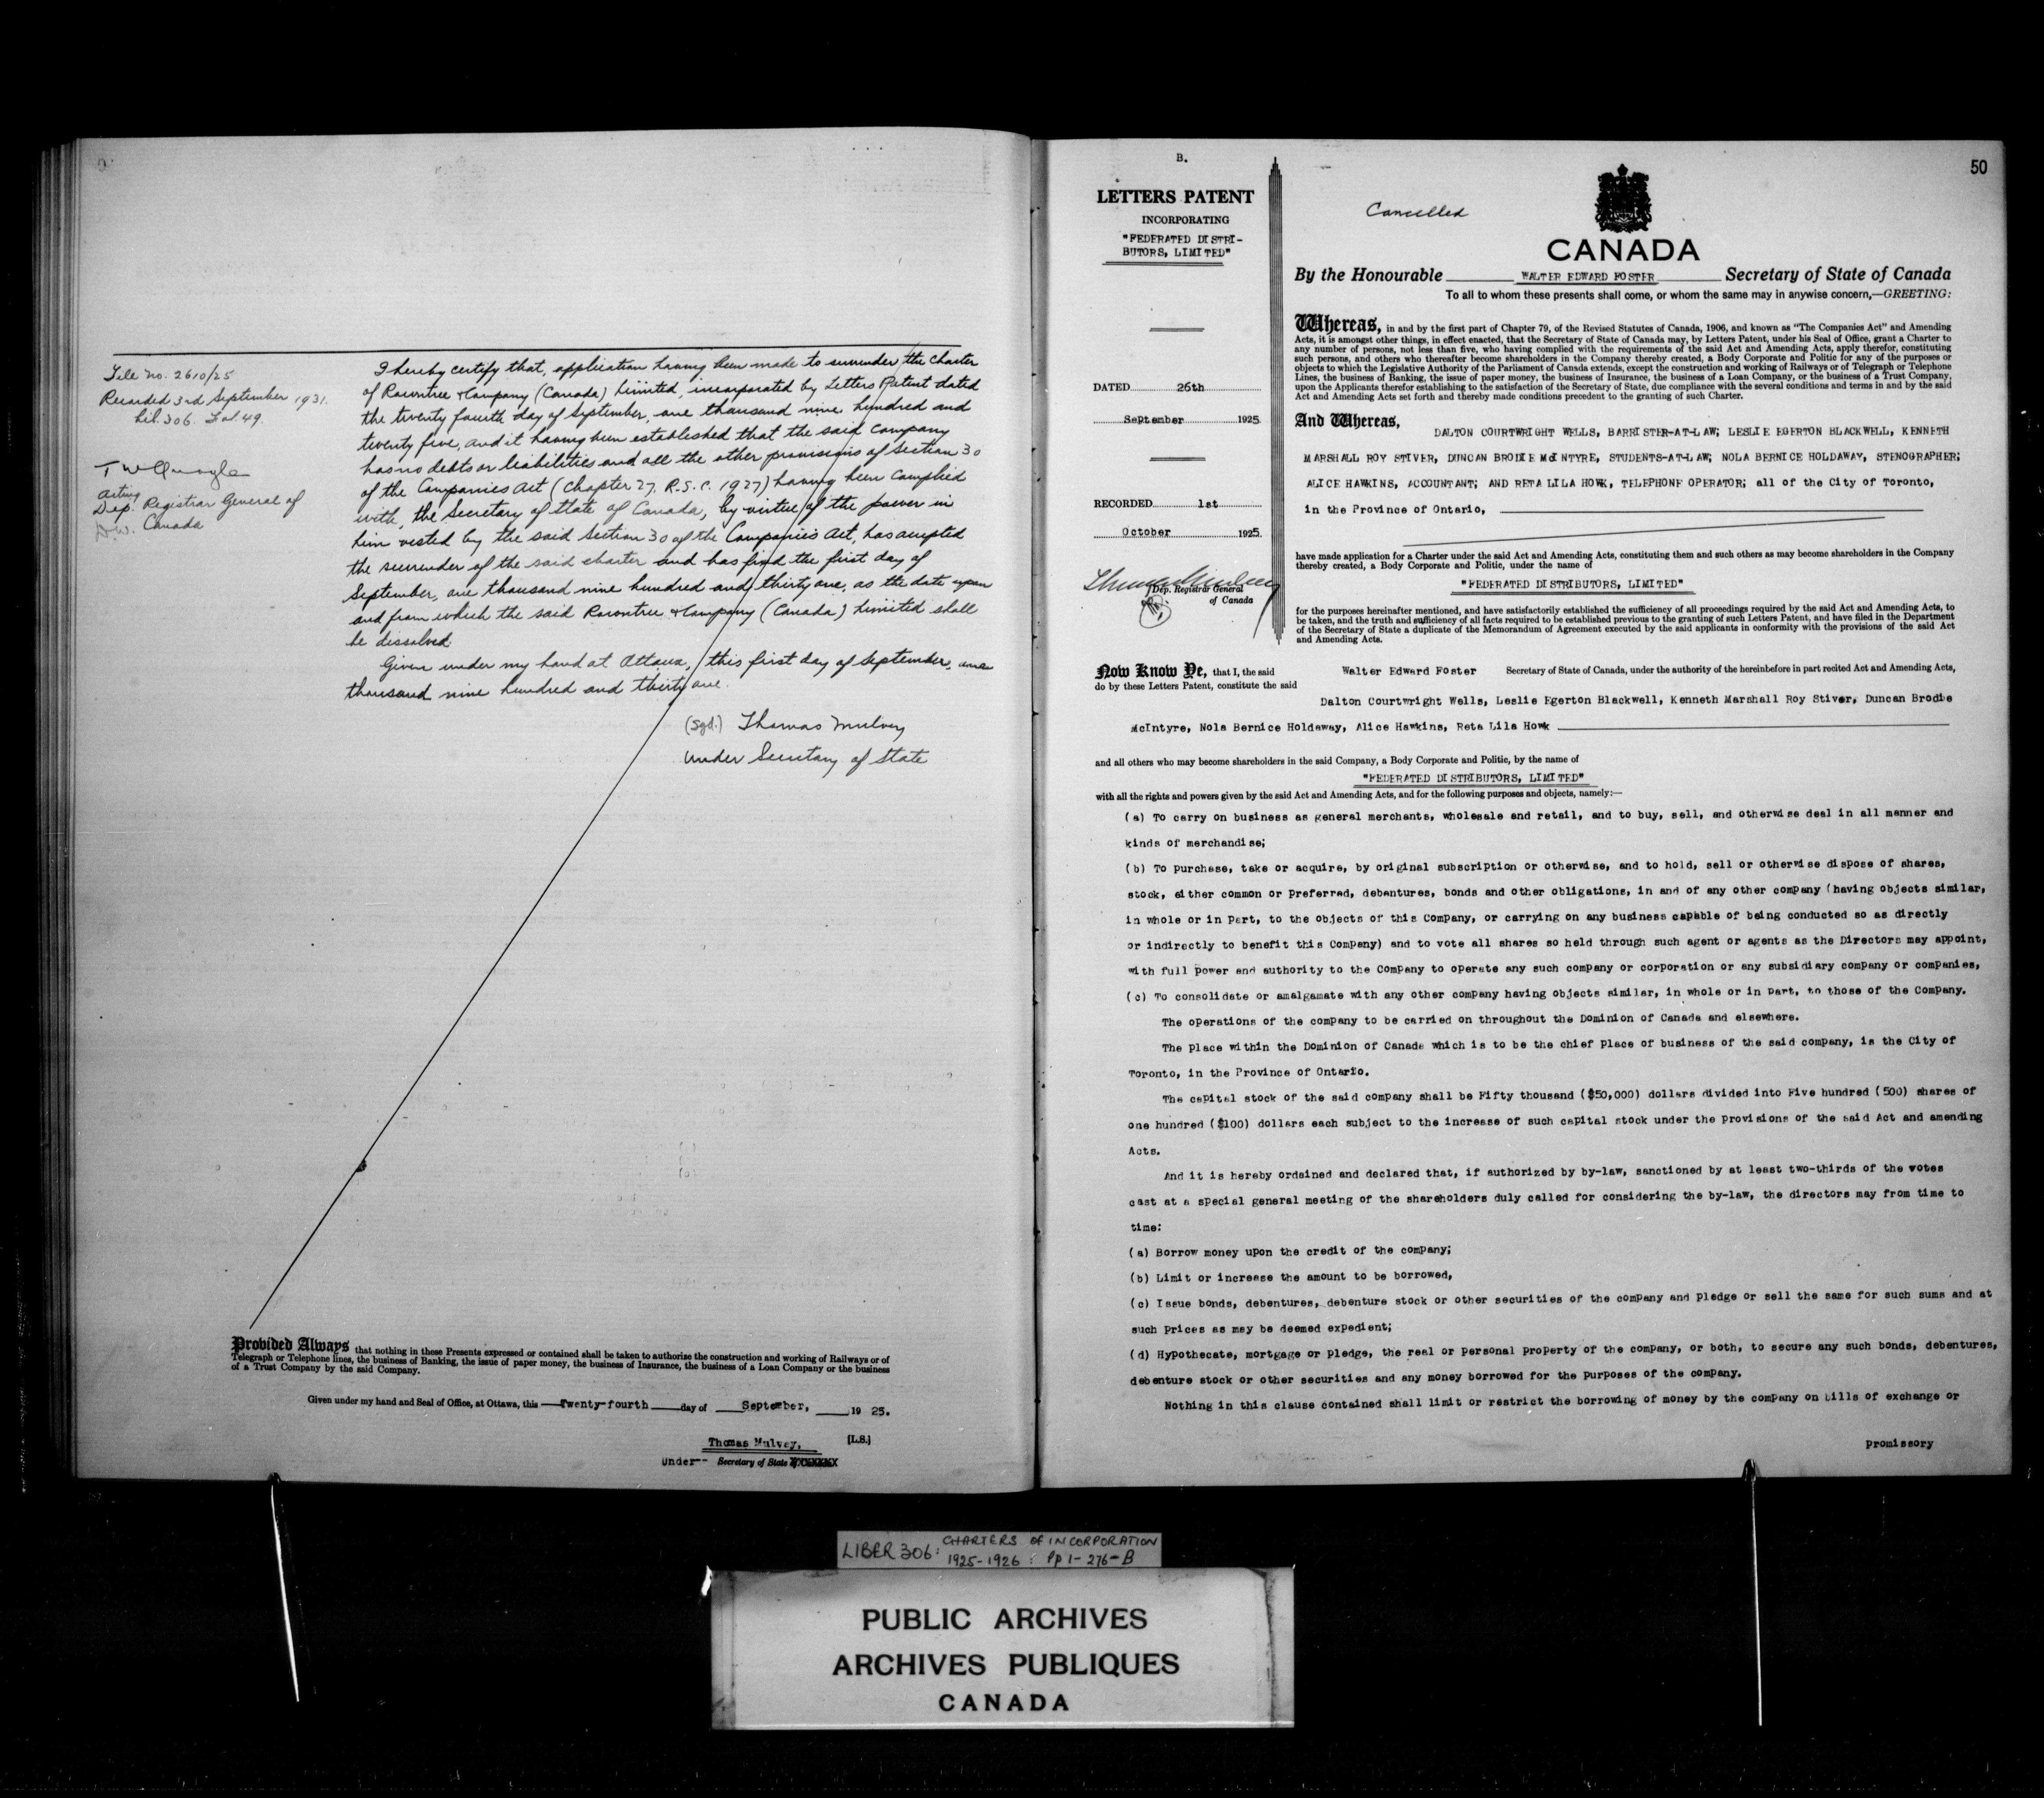 File No. 2610/25
Recorded 3rd September 1931.
Lib. 306. Fol. 49.
Acting
Dep. Registrar General of
Canada
I hereby certify that, application having been made to surrender the charter
of Rowntree & Company (Canada) Limited, incorporated by Letters Patent dated
the twenty fourth day of September, one thousand nine hundred and
twenty five, and it having been established that the said Company
has no debts or liabilities and all the other provisions of Section 30
of the Companies Act (Chapter 27, R.S.C. 1927) having been complied
with, the Secretary of State of Canada, by virtue of the power in
him vested by the said Section 30 of the Companies Act, has accepted
the surrender of the said charter and has fixed the first day of
September, one thousand nine hundred and thirty one, as the date upon
and from which the said Rowntree & Company (Canada) Limited shall
be dissolved.
Given under my hand at Ottawa, this first day of September, one
thousand nine hundred and thirty one.
(Sgd.) Thomas Mulvey
Under Secretary of State
Provided Always that nothing in these Presents expressed or contained shall be taken to authorise the construction and working of Railways or of
Telegraph or Telephone lines, the business of Banking, the issue of paper money, the business of Insurance, the business of a Loan Company or the business
of a Trust Company by the said Company.
Given under my hand and Seal of Office, at Ottawa, this Twenty-fourth day of September, 19 25.
Thomas Mulvey, [L.S.]
Under-- Secretary of State
50
B.
LETTERS PATENT
INCORPORATING
"FEDERATED DISTRI-
BUTORS, LIMITED"
DATED 26th
September 1925
RECORDED 1st
October 1925
Dep. Registrar General
of Canada
Cancelled
CANADA
By the Honourable WALTER EDWARD FOSTER Secretary of State of Canada
To all to whom these presents shall come, or whom the same may in anywise concern,—GREETING:
Whereas, in and by the first part of Chapter 79, of the Revised Statutes of Canada, 1906, and known as "The Companies Act" and Amending
Acts, it is amongst other things, in effect enacted, that the Secretary of State of Canada may, by Letters Patent, under his Seal of Office, grant a Charter to
any number of persons, not less than five, who having complied with the requirements of the said Act and Amending Acts, apply therefor, constituting
such persons, and others who thereafter become shareholders in the Company thereby created, a Body Corporate and Politic for any of the purposes or
objects to which the Legislative Authority of the Parliament of Canada extends, except the construction and working of Railways or of Telegraph or Telephone
Lines, the business of Banking, the issue of paper money, the business of Insurance, the business of a Loan Company, or the business of a Trust Company,
upon the Applicants therefor establishing to the satisfaction of the Secretary of State, due compliance with the several conditions and terms in and by the said
Act and Amending Acts set forth and thereby made conditions precedent to the granting of such Charter.
And Whereas,
DALTON COURTWRIGHT WELLS, BARRISTER-AT-LAW; LESLIE EGERTON BLACKWELL, KENNETH
MARSHALL ROY STIVER, DUNCAN BRODIE McINTYRE, STUDENTS-AT-LAW; NOLA BERNICE HOLDAWAY, STENOGRAPHER;
ALICE HAWKINS, ACCOUNTANT; AND RETA LILA HOWK, TELEPHONE OPERATOR; all of the City of Toronto,
in the Province of Ontario,
have made application for a Charter under the said Act and Amending Acts, constituting them and such others as may become shareholders in the Company
thereby created, a Body Corporate and Politic, under the name of
"FEDERATED DISTRIBUTORS, LIMITED"
for the purposes hereinafter mentioned, and have satisfactorily established the sufficiency of all proceedings required by the said Act and Amending Acts, to
be taken, and the truth and sufficiency of all facts required to be established previous to the granting of such Letters Patent, and have filed in the Department
of the Secretary of State a duplicate of the Memorandum of Agreement executed by the said applicants in conformity with the provisions of the said Act
and Amending Acts.
Now Know Ye, that I, the said Walter Edward Foster Secretary of State of Canada, under the authority of the hereinbefore in part recited Act and Amending Acts,
do by these Letters Patent, constitute the said
Dalton Courtwright Wells, Leslie Egerton Blackwell, Kenneth Marshall Roy Stiver, Duncan Brodie
McIntyre, Nola Bernice Holdaway, Alice Hawkins, Reta Lila Howk
and all others who may become shareholders in the said Company, a Body Corporate and Politic, by the name of
"FEDERATED DISTRIBUTORS, LIMITED"
with all the rights and powers given by the said Act and Amending Acts, and for the following purposes and objects, namely:—
(a) To carry on business as general merchants, wholesale and retail, and to buy, sell, and otherwise deal in all manner and
kinds of merchandise;
(b) To purchase, take or acquire, by original subscription or otherwise, and to hold, sell or otherwise dispose of shares,
stock, either common or preferred, debentures, bonds and other obligations, in and of any other company (having objects similar,
in whole or in part, to the objects of this Company, or carrying on any business capable of being conducted so as directly
or indirectly to benefit this Company) and to vote all shares so held through such agent or agents as the Directors may appoint,
with full power and authority to the Company to operate any such company or corporation or any subsidiary company or companies,
(c) To consolidate or amalgamate with any other company having objects similar, in whole or in part, to those of the Company.
The operations of the company to be carried on throughout the Dominion of Canada and elsewhere.
The place within the Dominion of Canada which is to be the chief place of business of the said company, is the City of
Toronto, in the Province of Ontario.
The capital stock of the said company shall be Fifty thousand ($50,000) dollars divided into Five hundred (500) shares of
one hundred ($100) dollars each subject to the increase of such capital stock under the provisions of the said Act and amending
Acts.
And it is hereby ordained and declared that, if authorized by by-law, sanctioned by at least two-thirds of the votes
cast at a special general meeting of the shareholders duly called for considering the by-law, the directors may from time to
time:
(a) Borrow money upon the credit of the company;
(b) Limit or increase the amount to be borrowed,
(c) Issue bonds, debentures, debenture stock or other securities of the company and pledge or sell the same for such sums and at
such prices as may be deemed expedient;
(d) Hypothecate, mortgage or pledge, the real or personal property of the company, or both, to secure any such bonds, debentures,
debenture stock or other securities and any money borrowed for the purposes of the company.
Nothing in this clause contained shall limit or restrict the borrowing of money by the company on bills of exchange or
promissory
LIBER 306: CHARTERS OF INCORPORATION
1925-1926 : Pp 1-276-B
PUBLIC ARCHIVES
ARCHIVES PUBLIQUES
CANADA